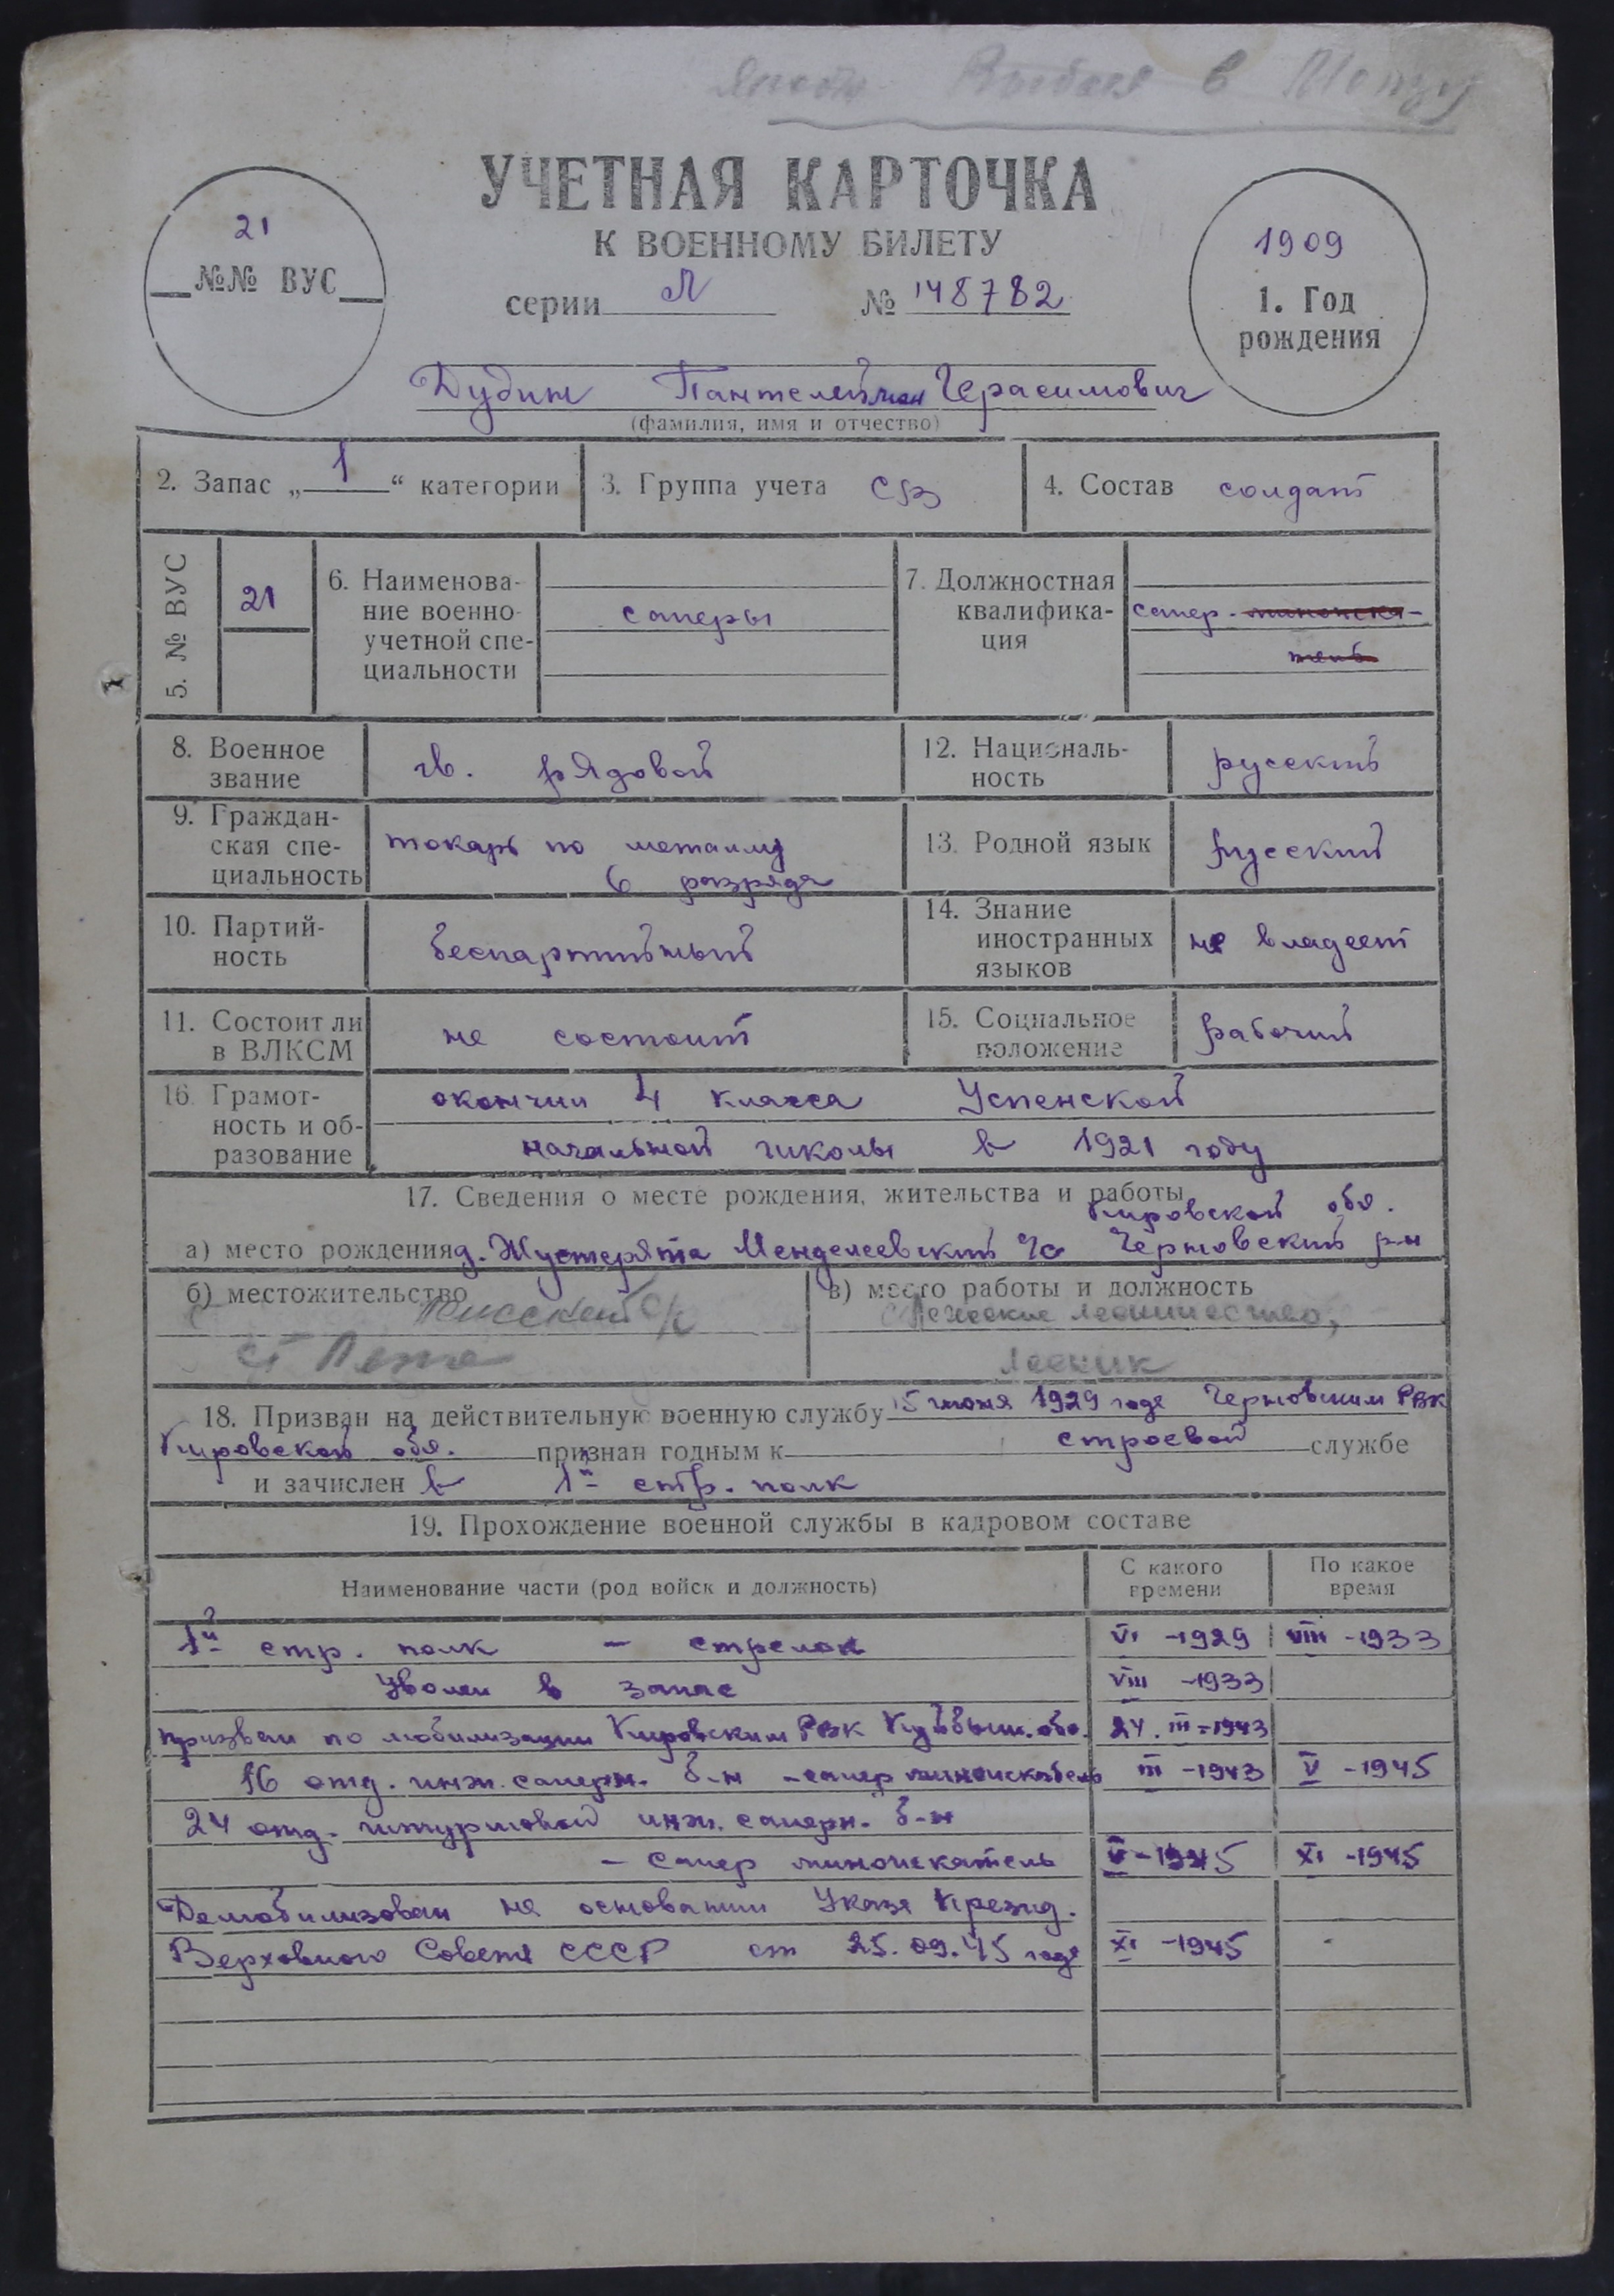 Выбыл в
УЧЕТНАЯ КАРТОЧКА
К ВОЕННОМУ БИЛЕТУ
21
№№ ВУС
серии Л № 148782
1909
1. Год
рождения
Дудин Пантелеймон Герасимович
(фамилия, имя и отчество)
2. Запас „1“ категории
3. Группа учета СА
4. Состав солдат
5. № ВУС
21
6. Наименова-
ние военно-
учетной спе-
циальности
саперы
7. Должностная
квалифика-
ция
сапер - миноиска-
тель
8. Военное
звание
гв. рядовой
12. Националь-
ность
русский
9. Граждан-
ская спе-
циальность
токарь по металлу
6 разряда
13. Родной язык
русский
10. Партий-
ность
беспартийный
14. Знание
иностранных
языков
не владеет
11. Состоит ли
в ВЛКСМ
не состоит
15. Социальное
положение
рабочий
16. Грамот-
ность и об-
разование
окончил 4 класса Успенской
начальной школы в 1921 году
17. Сведения о месте рождения, жительства и работы
Кировской обл.
а) место рождения д. Жустерята Менделеевский с/с Черновский р-н
б) местожительство
в) место работы и должность
лесничество,
лесник
18. Призван на действительную военную службу 15 июня 1929 года Черновским РВК
Кировской обл. признан годным к строевой службе
и зачислен в 1й стр. полк
19. Прохождение военной службы в кадровом составе
Наименование части (род войск и должность)
С какого
времени
По какое
время
1й стр. полк - стрелок VI - 1929 VIII - 1933
Уволен в запас VIII - 1933
призван по мобилизации Кировским РВК Куйбыш. обл. 24. III - 1943
16 отд. инж. саперн. б-н - сапер миноискатель III - 1943 V - 1945
24 отд. штурмовой инж. саперн. б-н
- сапер миноискатель V - 1945 XI - 1945
Демобилизован на основании Указа Презид.
Верховного Совета СССР от 25.09.45 года XI - 1945